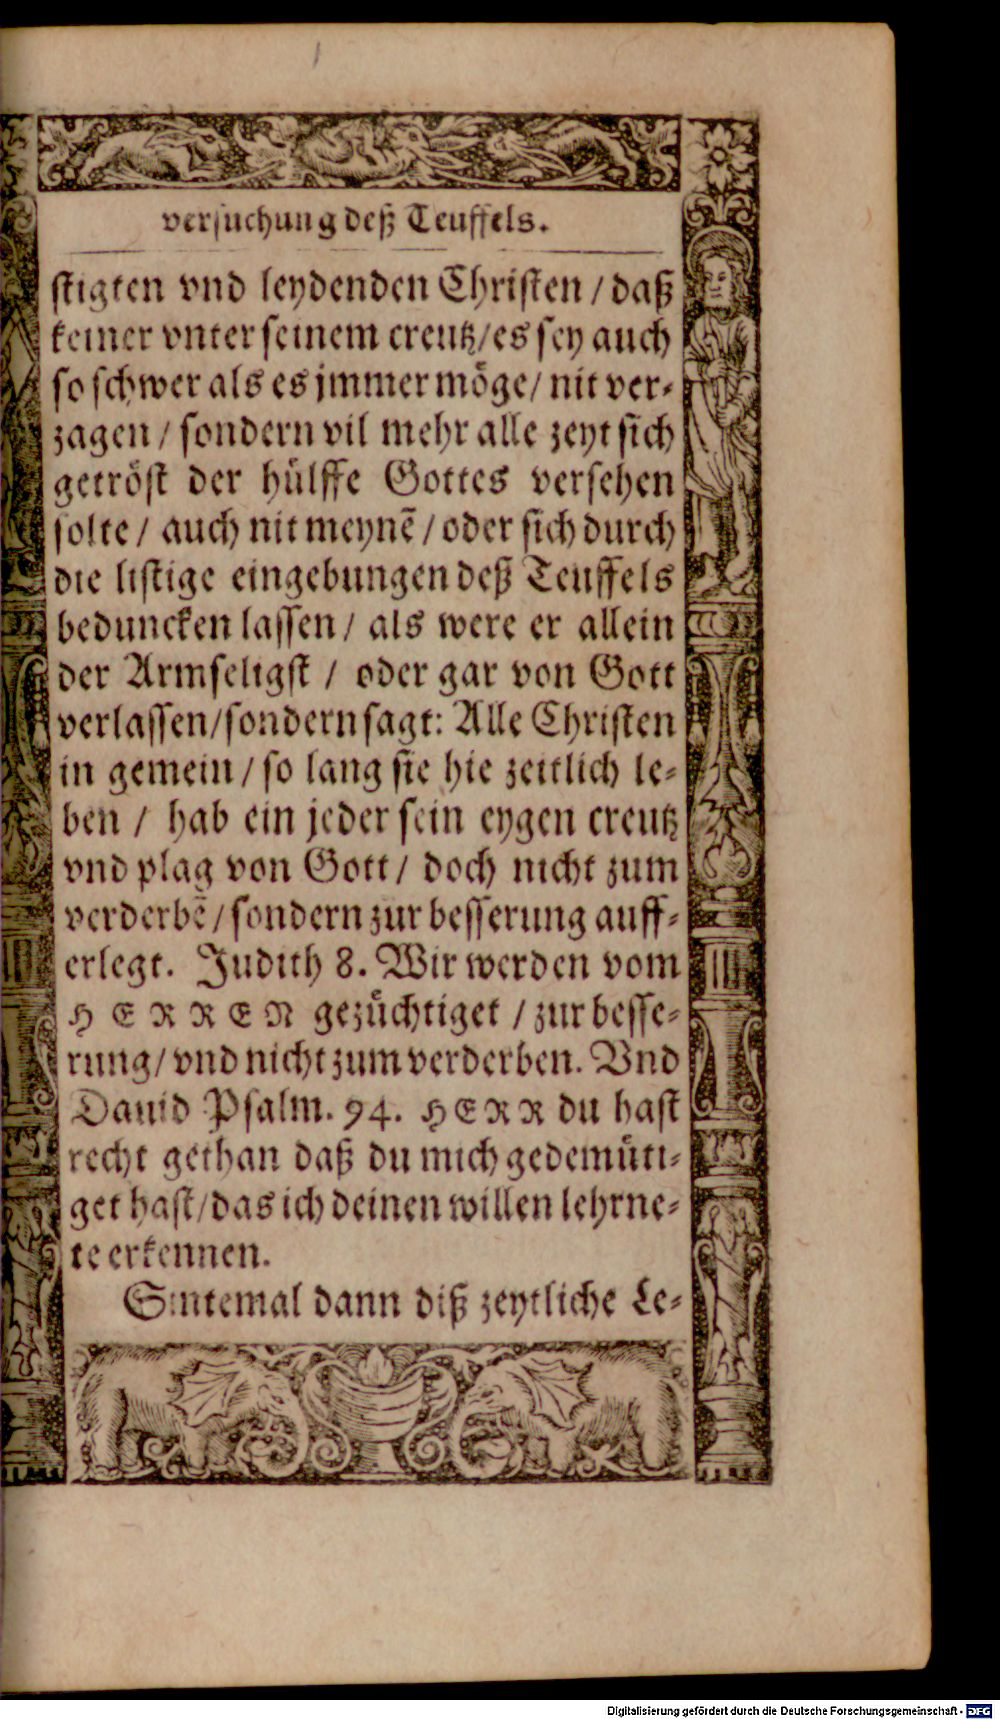 versuchung deß Teuffels.
stigten vnd leydenden Christen / daß
keiner vnter seinem creutz / es sey auch
so schwer als es jmmer möge / nit ver-
zagen / sondern vil mehr alle zeyt sich
getröst der hülffe Gottes versehen
solte / auch nit meynẽ / oder sich durch
die listige eingebungen deß Teuffels
beduncken lassen / als were er allein
der Armseligst / oder gar von Gott
verlassen / sondern sagt: Alle Christen
in gemein / so lang sie hie zeitlich le-
ben / hab ein jeder sein eygen creutz
vnd plag von Gott / doch nicht zum
verderbẽ / sondern zur besserung auff-
erlegt. Judith 8. Wir werden vom
HERREN gezüchtiget / zur besse-
rung / vnd nicht zum verderben. Vnd
Dauid Psalm. 94. HERR du hast
recht gethan daß du mich gedemüti-
get hast / das ich deinen willen lehrne-
te erkennen.
Sintemal dann diß zeytliche Le-
Digitalisierung gefördert durch die Deutsche Forschungsgemeinschaft - DFG